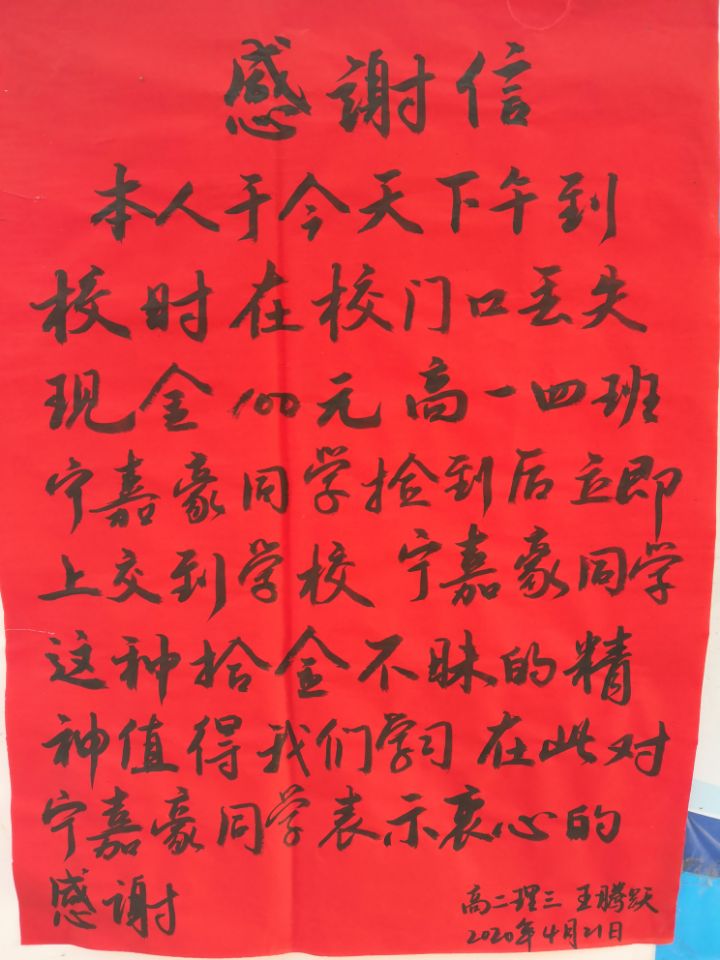 感謝信
本人于今天下午到
校时在校门口丢失
现金100元 高一四班
宁嘉豪同学捡到后立即
上交到学校 宁嘉豪同学
这种拾金不昧的精
神值得我们学习 在此对
宁嘉豪同学表示衷心的
感謝
高二理三 王腾跃
2020年4月21日